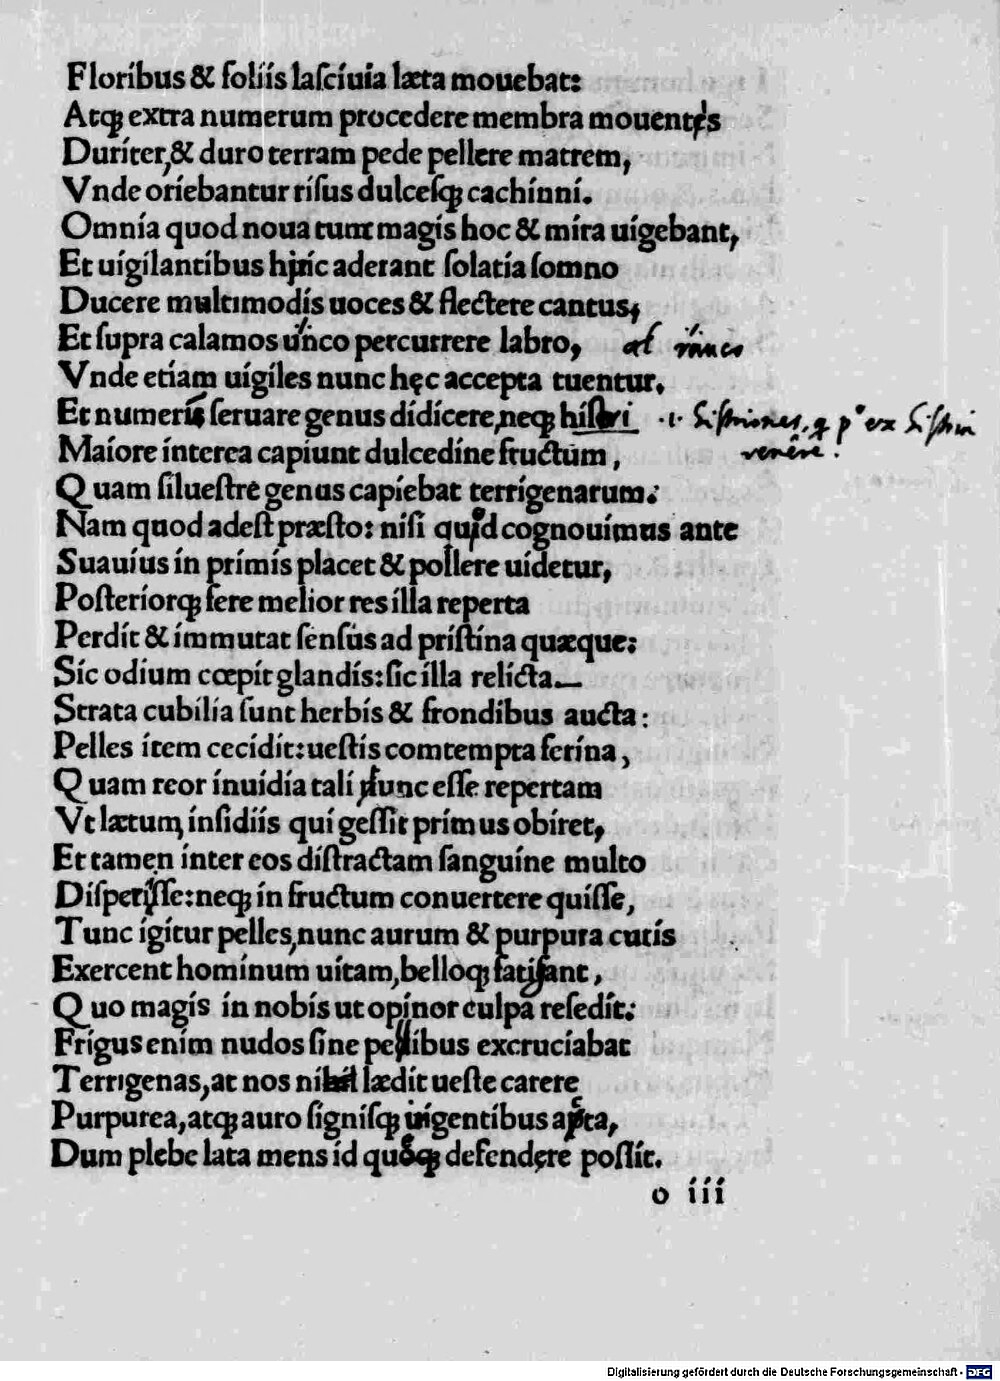 Floribus & foliis lasciuia læta mouebat:
Atqꝫ extra numerum procedere membra mouentes
Duriter, & duro terram pede pellere matrem,
Vnde oriebantur risus dulcesqꝫ cachinni.
Omnia quod noua tunc magis hoc & mira uigebant,
Et uigilantibus hinc aderant solatia somno
Ducere multimodis uoces & flectere cantus,
Et supra calamos unco percurrere labro, al
Vnde etiam uigiles nunc hęc accepta tuentur.
Et numeris seruare genus didicere, neqꝫ histri .i. histriones, ex histria
Maiore interea capiunt dulcedine fructum, venere.
Quam siluestre genus capiebat terrigenarum.
Nam quod adest præsto: nisi quid cognouimus ante
Suauius in primis placet & pollere uidetur,
Posteriorqꝫ fere melior res illa reperta
Perdit & immutat sensus ad pristina quæque:
Sic odium cœpit glandis: sic illa relicta
Strata cubilia sunt herbis & frondibus aucta:
Pelles item cecidit: uestis comtempta ferina,
Quam reor inuidia tali nunc esse repertam
Vt lætum, insidiis qui gessit primus obiret,
Et tamen inter eos distractam sanguine multo
Disperisse: neqꝫ in fructum conuertere quisse,
Tunc igitur pelles, nunc aurum & purpura cutis
Exercent hominum uitam, belloqꝫ fatigant,
Quo magis in nobis ut opinor culpa resedit:
Frigus enim nudos sine pellibus excruciabat
Terrigenas, at nos nihil lædit ueste carere
Purpurea, atqꝫ auro signisqꝫ ingentibus apta,
Dum plebe lata mens id defendere possit.
o iii
Digitalisierung gefördert durch die Deutsche Forschungsgemeinschaft - DFG